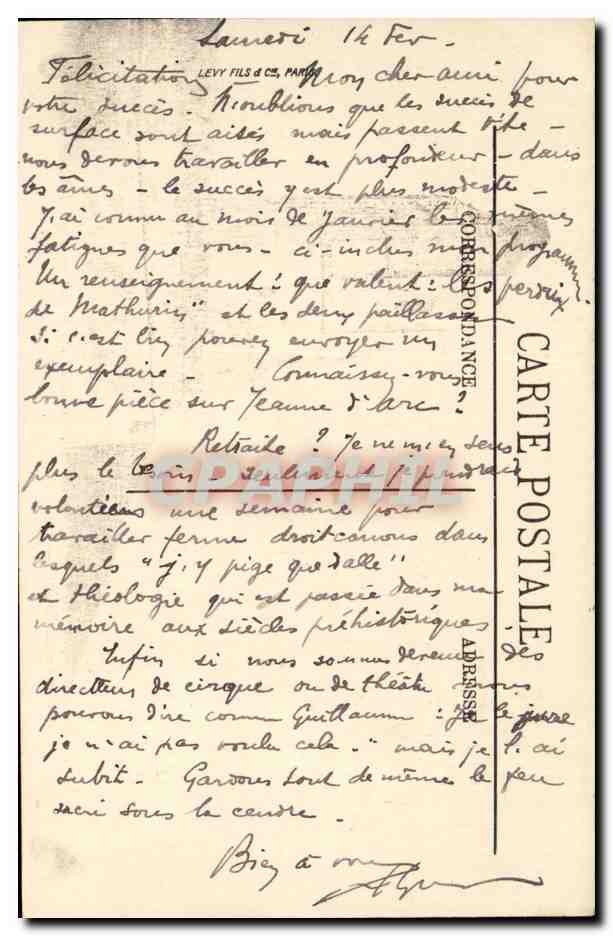 Samedi 14 Fev.
LEVY FILS & Cie, PARIS
Félicitations Mon cher ami pour
votre succès. N'oublions que les succès de
surface sont aisés mais passent vite -
nous devons travailler en profondeur - dans
les âmes - le succès y est plus modeste -
J'ai connu au mois de Janvier les mêmes
fatigues que vous - ci-inclus mon programme.
Un renseignement : que valent : les perdrix
de Mathurin" et les deux paillasses
Si c'est bien pouvez envoyer un
exemplaire - Connaissez-vous
bonne pièce sur Jeanne d'Arc ?
Retraite ? Je ne m'en sens
plus le besoin - seulement je prendrais
volontiers une semaine pour
travailler ferme droit canons dans
lesquels "j'y pige que dalle"
et théologie qui est passée dans ma
mémoire aux siècles préhistoriques.
Enfin si nous sommes devenus des
directeurs de cirque ou de théâtre nous
pouvons dire comme Guillaume : Je le jure
je n'ai pas voulu cela." mais je l'ai
subit - Gardons tout de même le feu
sacré sous la cendre.
Bien à vous
CARTE POSTALE
CORRESPONDANCE
ADRESSE
CPAPHIL